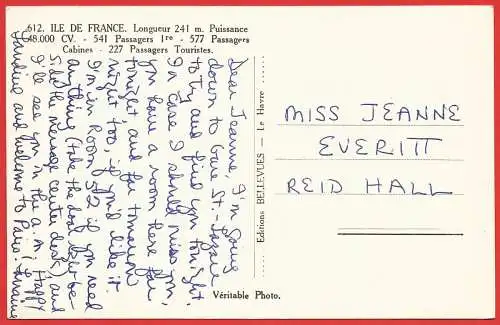 612. ILE DE FRANCE. Longueur 241 m. Puissance
48.000 CV. - 541 Passagers 1re - 577 Passagers
Cabines - 227 Passagers Touristes.
Dear Jeanne, I'm going
down to Gare St.-Lazare
to try and find you tonight.
In case I should miss you,
you have a room here for
tonight and for tomorrow
night too, if you'd like it.
I'm in Room 52 if you need
anything (take the door be-
side the message center desk) and
I'll see you in the a.m. Happy
landing and welcome to Paris!
Editions BELLEVUES - Le Havre
Véritable Photo.
MISS JEANNE
EVERITT
REID HALL